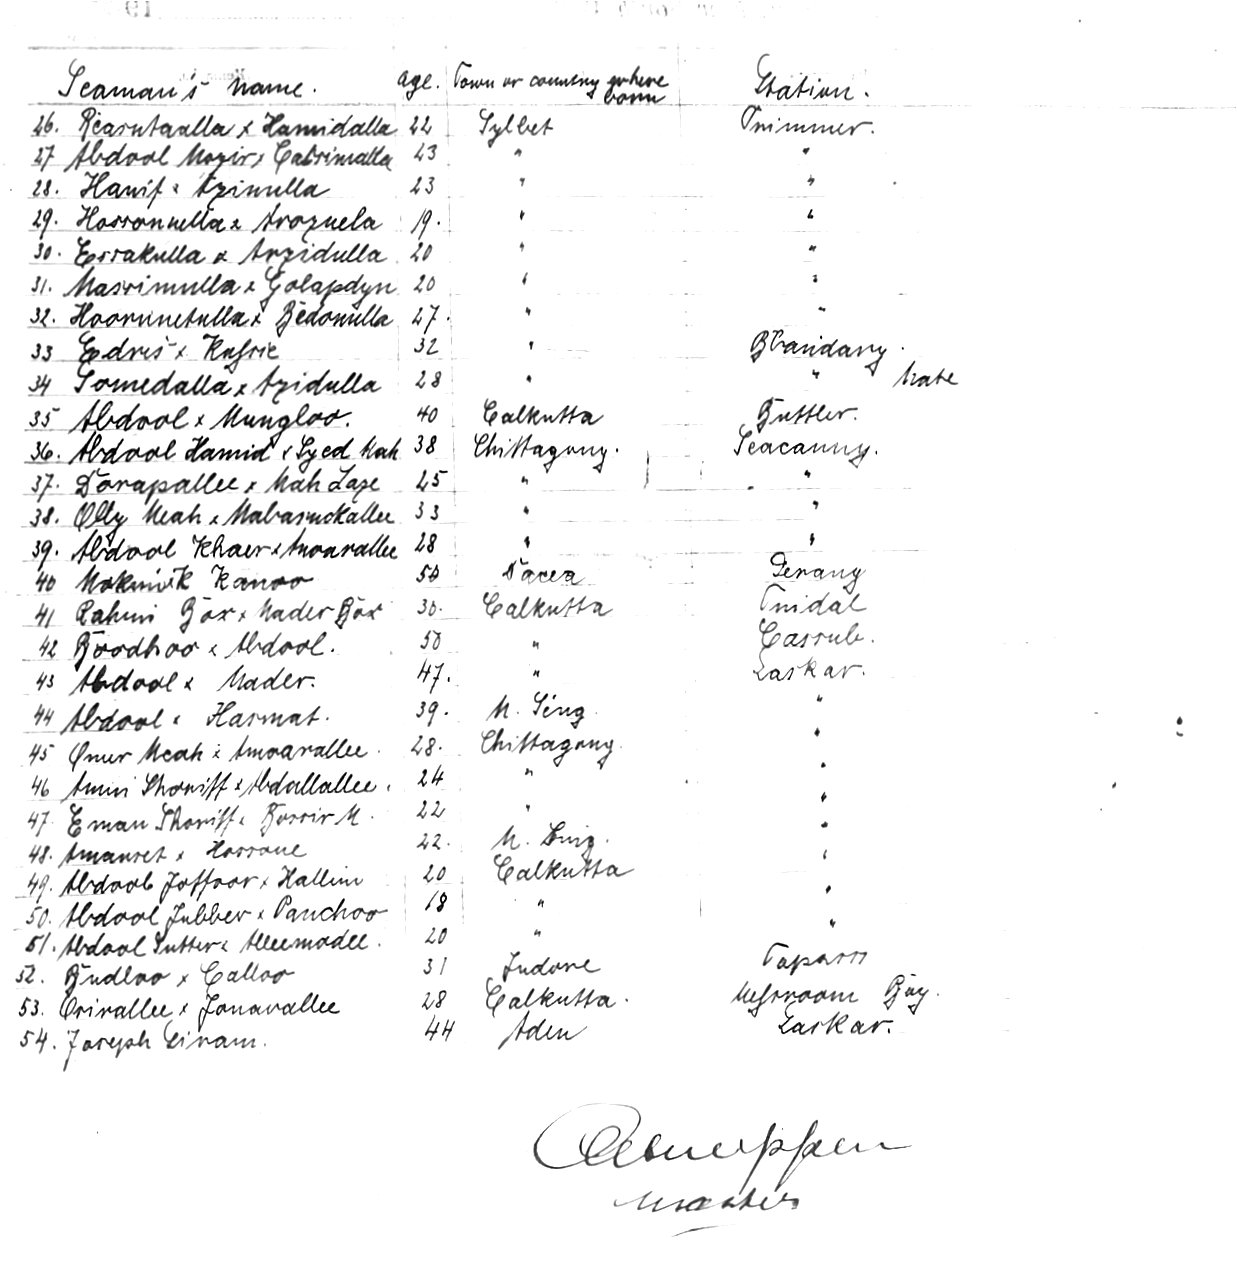 Seaman's name. age. Town or country where born Station.
26. Reasutaalla x Hamidalla 22 Sylhet Trimmer.
27 Abdool Mozir x Catrimalla 23 " "
28. Hanif x Azimulla 23 " "
29. Hossonnella x Arozuela 19. " "
30. Essakulla x Arzidulla 20 " "
31. Nassimulla x Golapdyn 20 " "
32. Hoorunnetulla x Bedonulla 27. " "
33 Edris x Kafsie 32 " Bhandary.
34 Somedalla x Azidulla 28 " " Mate
35 Abdool x Mungloo. 40 Calkutta Buttler.
36. Abdool Hamid x Syed Mah 38 Chittagong. Seacunny.
37. Dorapallee x Mah Laze 45 " "
38. Olly Meah x Mabaruckallee 33 " "
39. Abdool Khaer x Amoarallee 28 " "
40 Kanoo 50 Dacca Serang
41 Rahim Box x Mader Box 30. Calkutta Tnidal
42 Boodhoo x Abdool. 50 " Cassub.
43 Abdool x Mader. 47. " Laskar.
44 Abdool x Hasmat. 39. M. Sing "
45 Omer Meah x Amoarallee. 28. Chittagong "
46 Amin Shoriff x Abdallallee. 24 " "
47. Eman Shoriff x Bossir M. 22 " "
48. Amanset x Hossone 22. M. Sing. "
49. Abdool Joffoor x Hallim 20 Calkutta "
50. Abdool Jubber x Panchoo 18 " "
51. Abdool Sutter x Alleemodee. 20 " "
52. Budloo x Calloo 31 Indore Topass
53. Orivallee x Jonavallee 28 Calkutta. Messroom Boy.
54. Joseph Eiram. 44 Aden Laskar.
Master